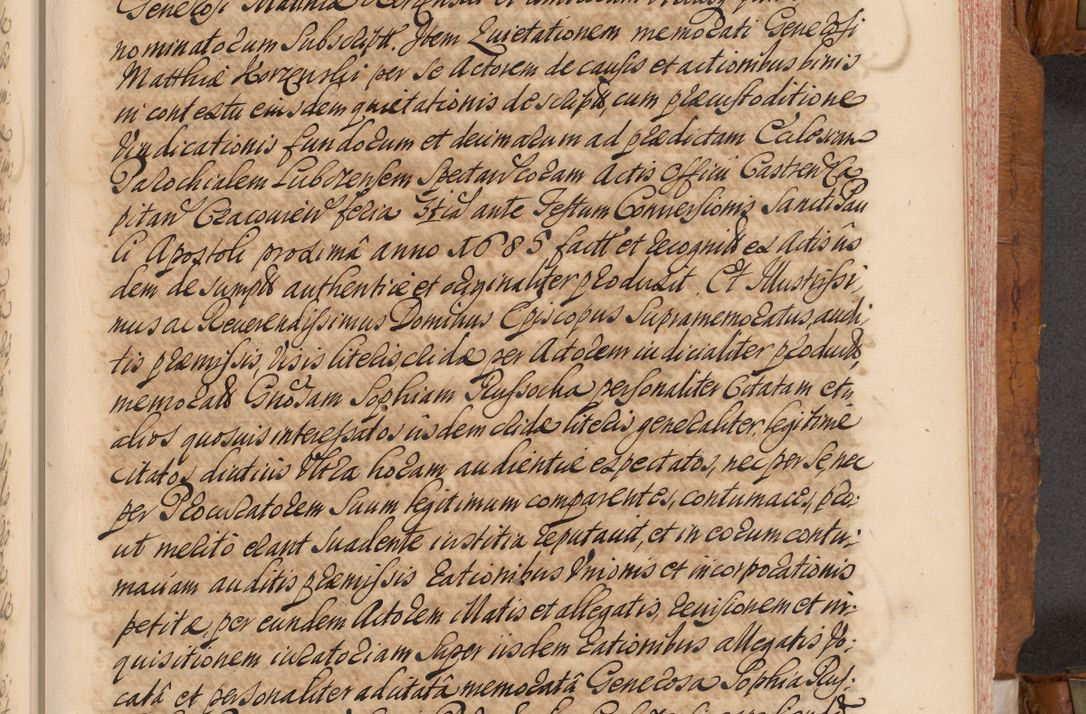 nominatorum subscript. Item Quietationem memorati Generosi
Matthiæ Korzenski per se Actorem de causis et actionibus binis
in contextu eiusdem quietationis descriptis, cum præcustoditione
Vindicationis fundorum et decimarum ad prædictam Eccles​iam
Parochialem Luborzensem spectan coram Actis Officii Castren Ca
pitan Cracovien feria 4ta ante Festum Conversionis Sancti Pau
li Apostoli proxima anno 1685 fact et recognit ex Actis iis
dem de sumpt authentice et originaliter produxit. Et Illustrissi,
mus ac Reverendissimus Dominus Episcopus supramemoratus, audi,
tis præmissis, visis literis, cridæ per Actorem iudicialiter product,
memorat Gnosam Sophiam Russocka personaliter citatam et
alios quosvis interessatos iisdem cridæ literis generaliter, legitime
citatos, diutius Ultra horam audientiæ expectatos, nec per se nec
per Procuratorem suum legitimum comparentes, contumaces, pro:
ut merito erant suadente iustitia reputavit, et in eorum contu:
maciam auditis præmissis rationibus Unionis et incorporationis
petitæ, per eundem Actorem illatis et allegatis, revisionem et in:
quisitionem iuratoriam super iisdem rationibus allegatis, vo:
cata et personaliter adcitata memorata Generosa Sophia Rus: